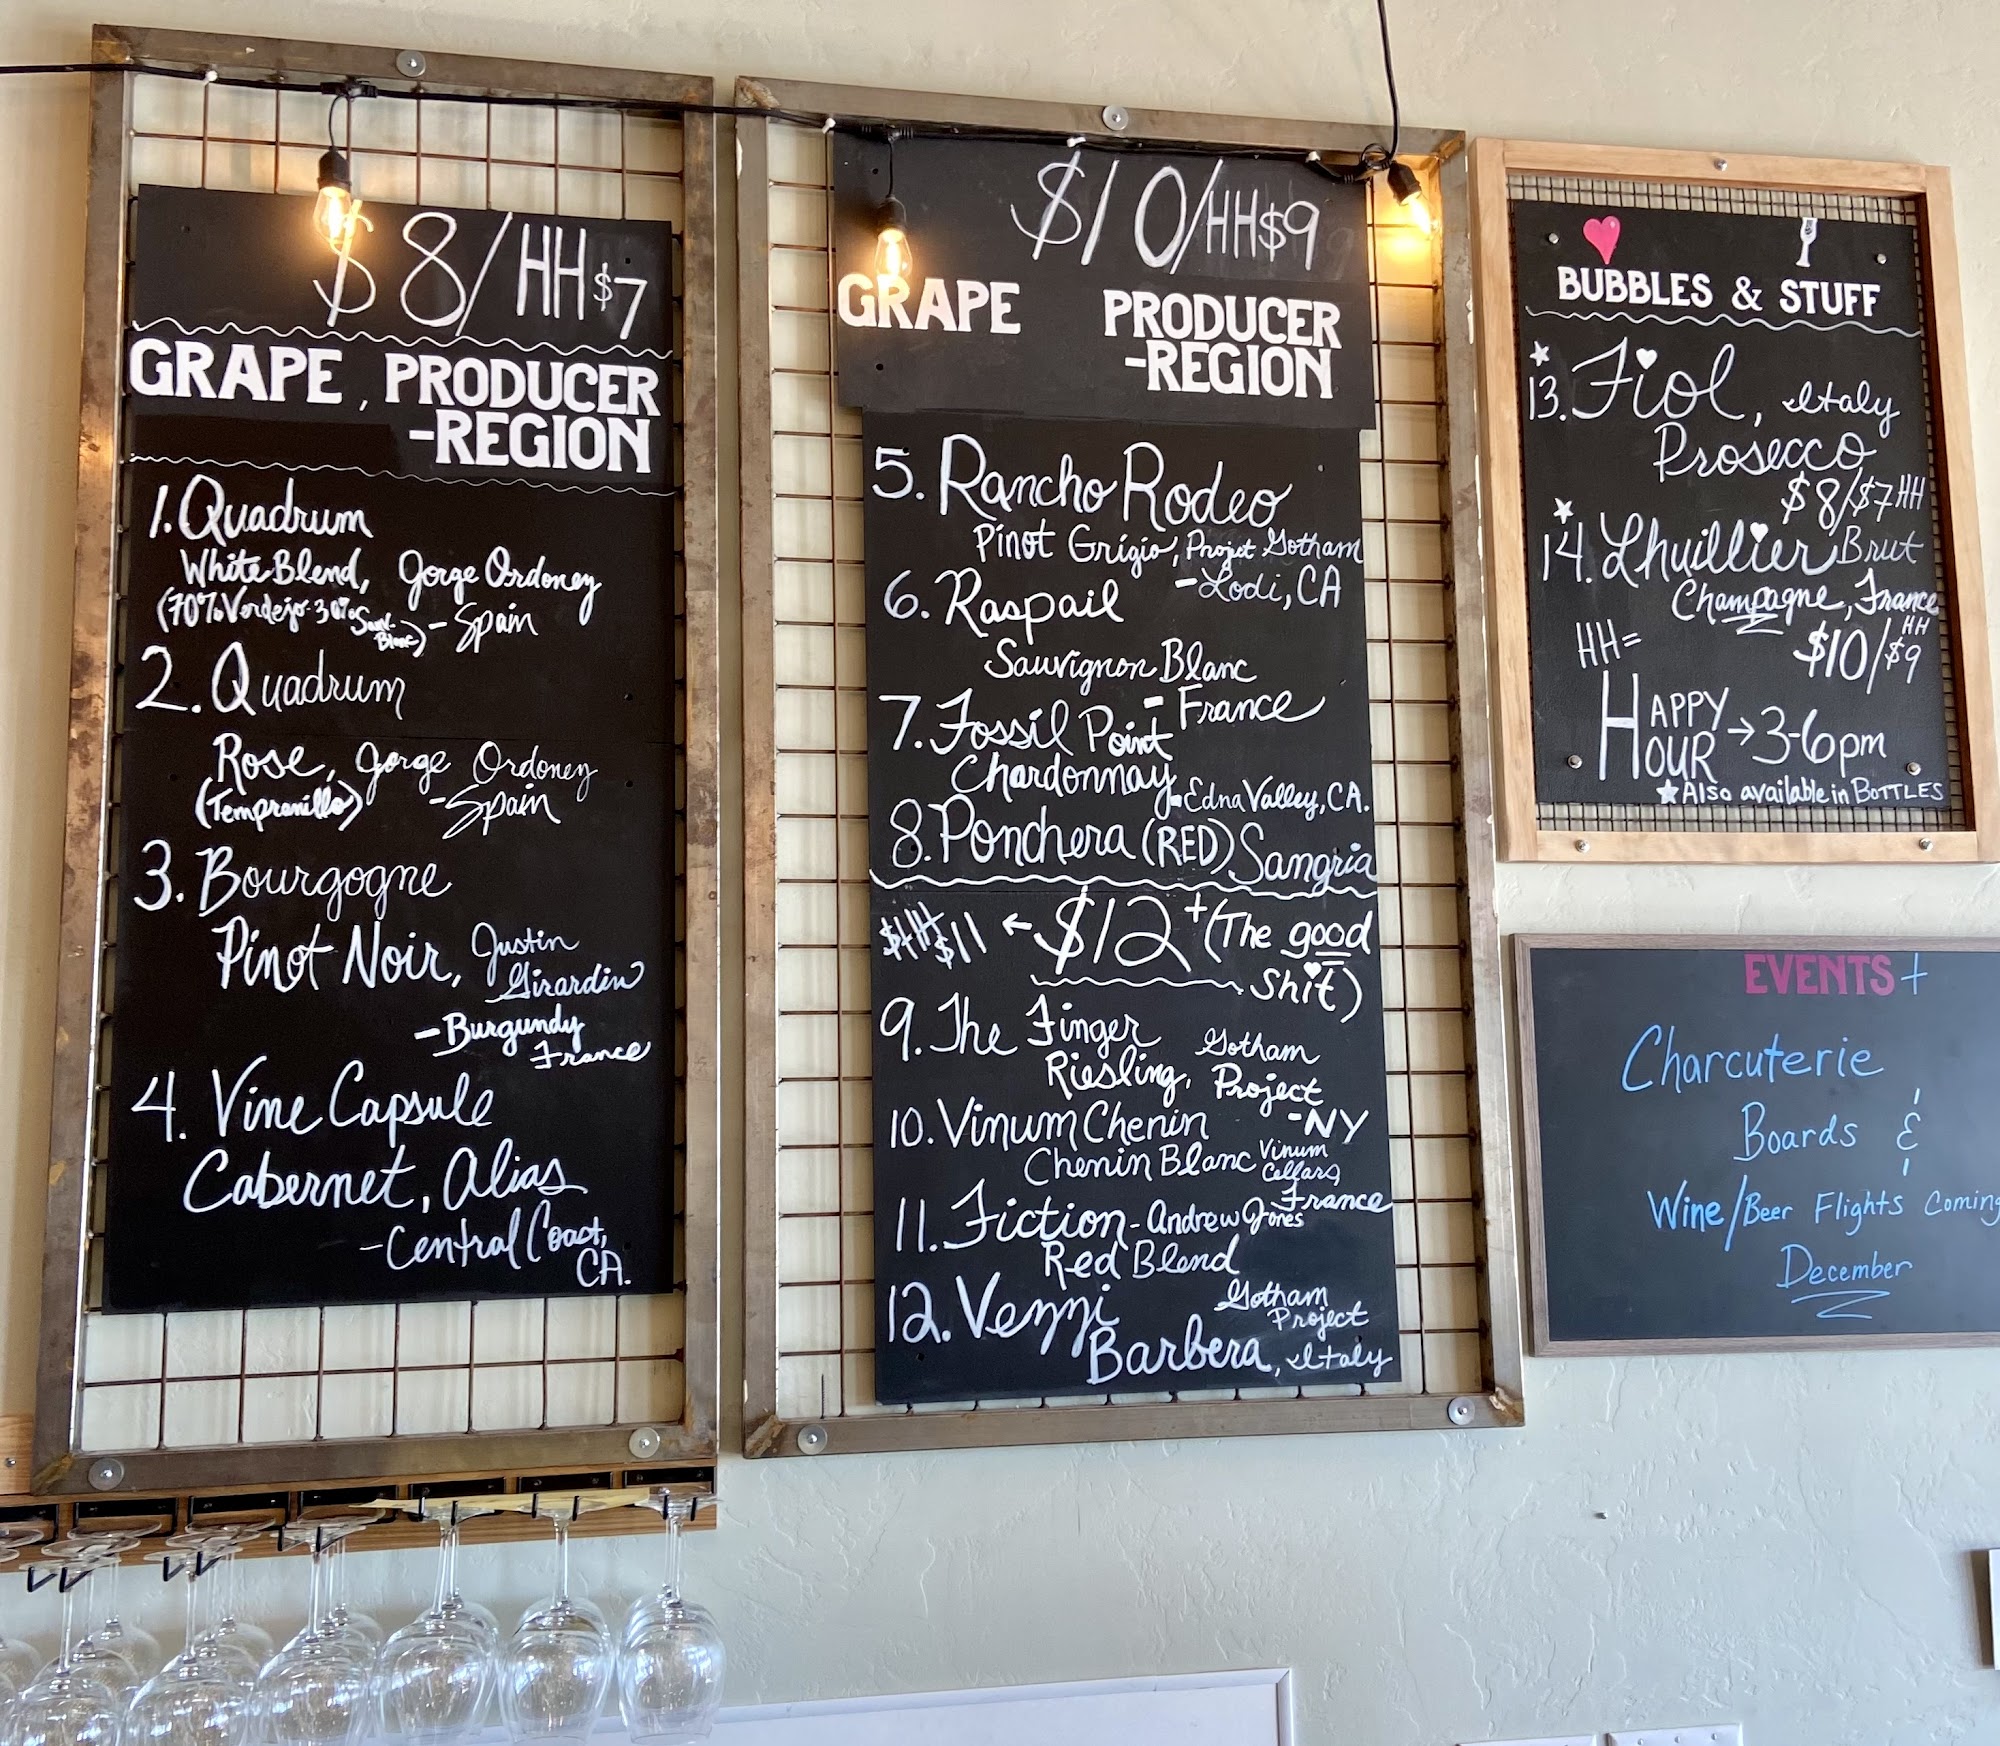 $8/HH $7
GRAPE, PRODUCER
-REGION
1. Quadrum
White Blend, Gorge Ordoney
(70% Verdejo-30% Sauv. Blanc) - Spain
2. Quadrum
Rose, Gorge Ordoney
(Tempranillo) - Spain
3. Bourgogne
Pinot Noir, Justin
Girardin
- Burgundy
France
4. Vine Capsule
Cabernet, Alias
- Central Coast,
CA.
$10/HH$9
GRAPE PRODUCER
-REGION
5. Rancho Rodeo
Pinot Grigio, Projet Gotham
- Lodi, CA
6. Raspail
Sauvignon Blanc
- France
7. Fossil Point
Chardonnay
- Edna Valley, CA.
8. Ponchera (RED) Sangria
HH $11 ← $12+ (The good
shit)
9. The Finger
Riesling, Gotham
Project
- NY
10. Vinum Chenin
Chenin Blanc Vinum
Cellars,
France
11. Fiction - Andrew Jones
Red Blend
12. Vezzi
Gotham
Project
Barbera, Italy
BUBBLES & STUFF
13. Fiol, Italy
Prosecco
$8/$7 HH
14. Lhuillier Brut
Champagne, France
HH= $10/$9 HH
HAPPY
HOUR → 3-6pm
Also available in BOTTLES
EVENTS +
Charcuterie
Boards &
Wine/Beer Flights Coming
December